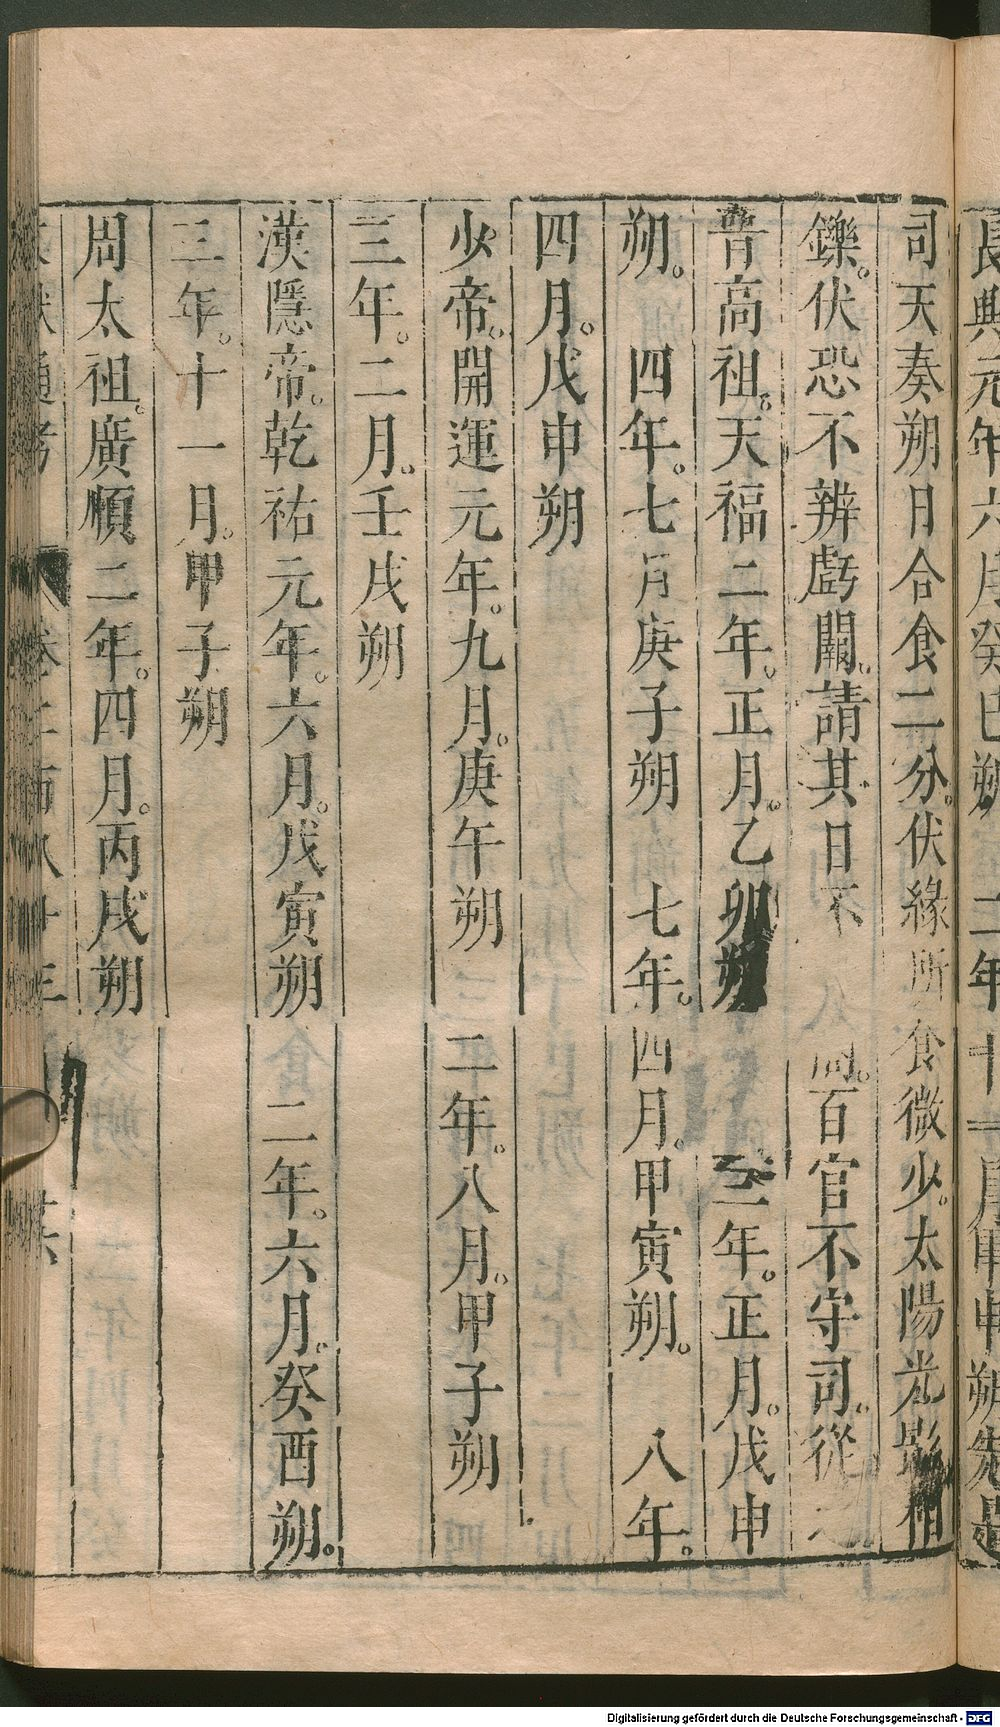 長興元年六月癸巳朔 二年十一月甲申朔先是
司天奏朔日合食二分。伏緣所食微少。太陽光影相
鑠。伏恐不辨虧闕。請其日不 百官不守司。從之
晉高祖。天福二年。正月。乙卯朔 三年。正月。戊申
朔。 四年。七月庚子朔 七年。四月。甲寅朔。 八年。
四月。戊申朔
少帝。開運元年。九月。庚午朔 二年。八月。甲子朔
三年。二月。壬戌朔
漢隱帝。乾祐元年。六月。戊寅朔 二年。六月。癸酉朔。
三年。十一月。甲子朔
周太祖。廣順二年。四月。丙戌朔
通考 卷二百八十三
Digitalisierung gefördert durch die Deutsche Forschungsgemeinschaft - DFG